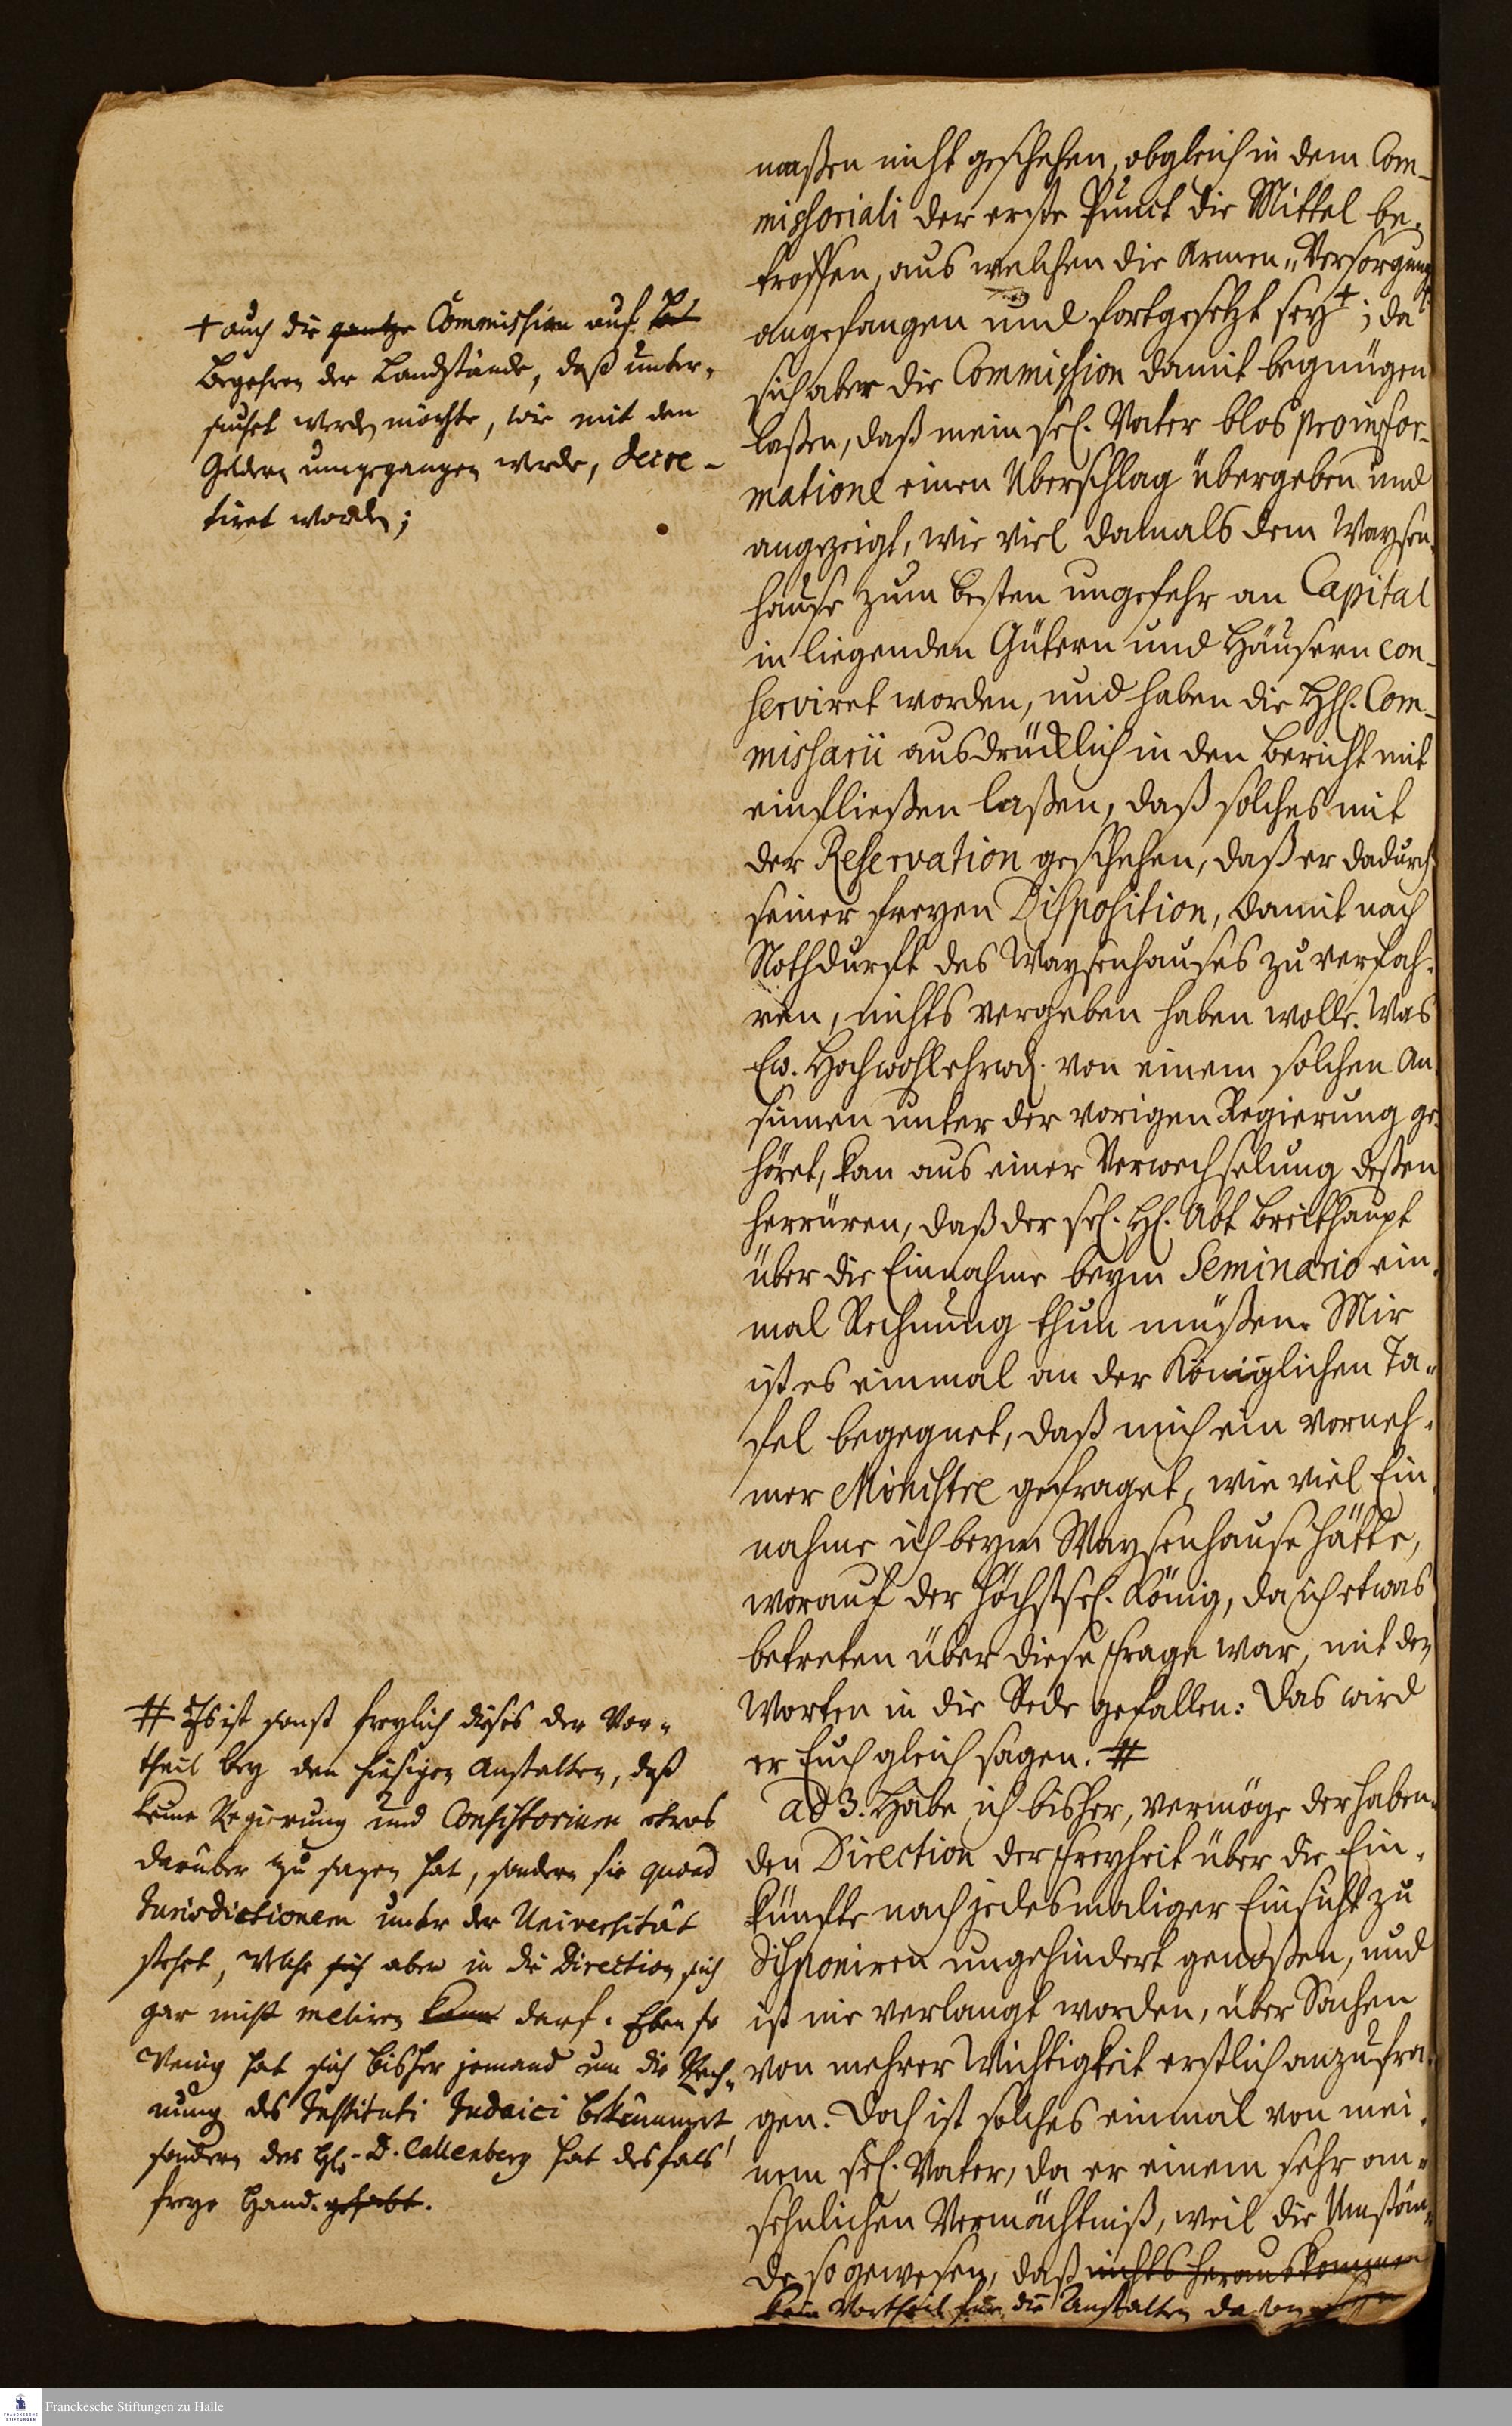 maßen nicht geschehen, obgleich in dem Com-
missoriali der erste Punct die Mittel be-
troffen, aus welchen die Armen-Versorgung
angefangen und fortgesetzt sey †; da
sich aber die Commission damit begnügen
laßen, daß mein sel. Vater blos pro infor-
matione einen Uberschlag übergeben und
angezeigt, wie viel damals dem Waysen-
hause zum besten ungefehr an Capital
in liegenden Gütern und Häusern con-
serviret worden, und haben die HH. Com-
missarii ausdrücklich in den Bericht mit
einfließen laßen, daß solches mit
der Reservation geschehen, daß er dadurch
seiner freyen Disposition, damit nach
Nothdurft des Waysenhauses zu verfah-
ren, nichts vergeben haben wolle. Was
Ew. Hochwohlehrwd. von einem solchen An-
sinnen unter der vorigen Regierung ge-
höret, kan aus einer Verwechselung deßen
herrüren, daß der sel. H. Abt Breithaupt
über die Einnahme beym Seminario ein-
mal Rechnung thun müßen. Mir
ist es einmal an der Königlichen Ta-
fel begegnet, daß mich ein vorneh-
mer Ministre gefraget, wie viel Ein-
nahme ich beym Waysenhause hätte,
worauf der höchstsel. König, da ich etwas
betreten über diese Frage war, mit den
Worten in die Rede gefallen: Das wird
er Euch gleich sagen. #
ad 3. Habe ich bisher, vermöge der haben-
den Direction der Freyheit über die Ein-
künfte nach jedesmaliger Einsicht zu
disponiren ungehindert genoßen, und
ist nie verlangt worden, über Sachen
von mehrer Wichtigkeit erstlich anzufra-
gen. Doch ist solches einmal von mei-
nem sel. Vater, da er einem sehr an-
sehnlichen Vermächtniß, weil die Umstän-
de so gewesen, daß nichts herauskommen
kein Vortheil für die Anstalten davon
† auch die gantze Commission auf hat
Begehren der Landstände, daß unter-
suchet werden möchte, wie mit den
Geldern umgegangen werde, decre-
tiret worden;
# Es ist sonst freylich dieses der Vor-
theil bey den hiesigen Anstalten, daß
keine Regierung und Consistorium etwas
darüber zu sagen hat, sondern sie quoad
Jurisdictionem unter der Universität
stehet, welche sich aber in die Direction sich
gar nicht meliren kann darf. Eben so
wenig hat sich bisher jemand um die Rech-
nung des Instituti Judaici bekümmert,
sondern der H. D. Callenberg hat desfals
freye Hand gehabt.
Franckesche Stiftungen zu Halle